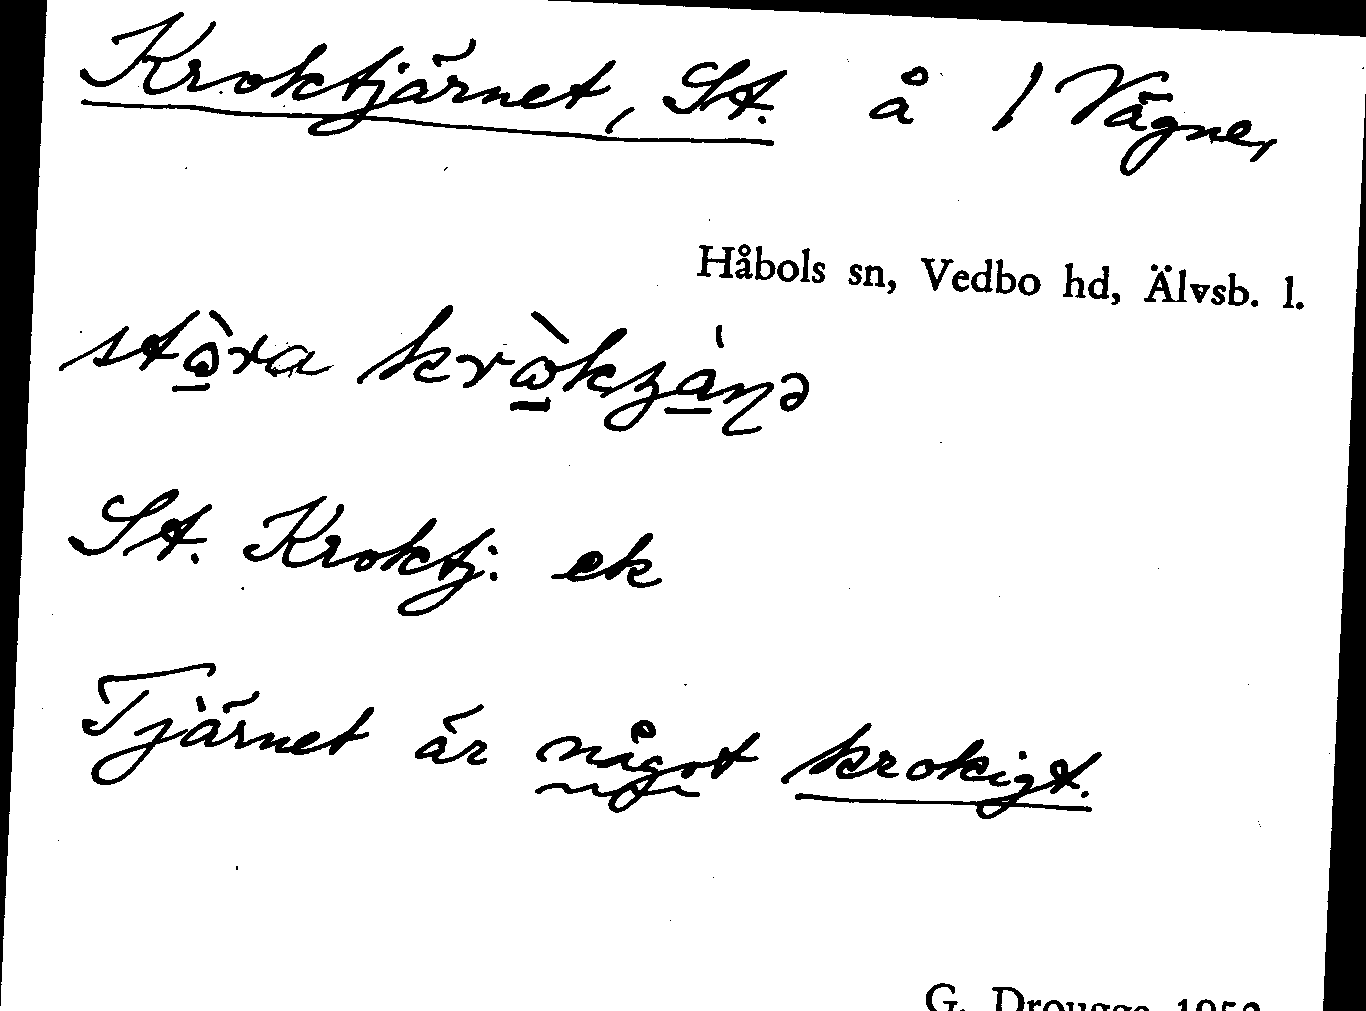 Kroktjärnet, St. å 1 Vägne,
Håbols sn, Vedbo hd, Älvsb. l.
St. Kroktj. ek
Tjärnet är något krokigt.
G. Drougge